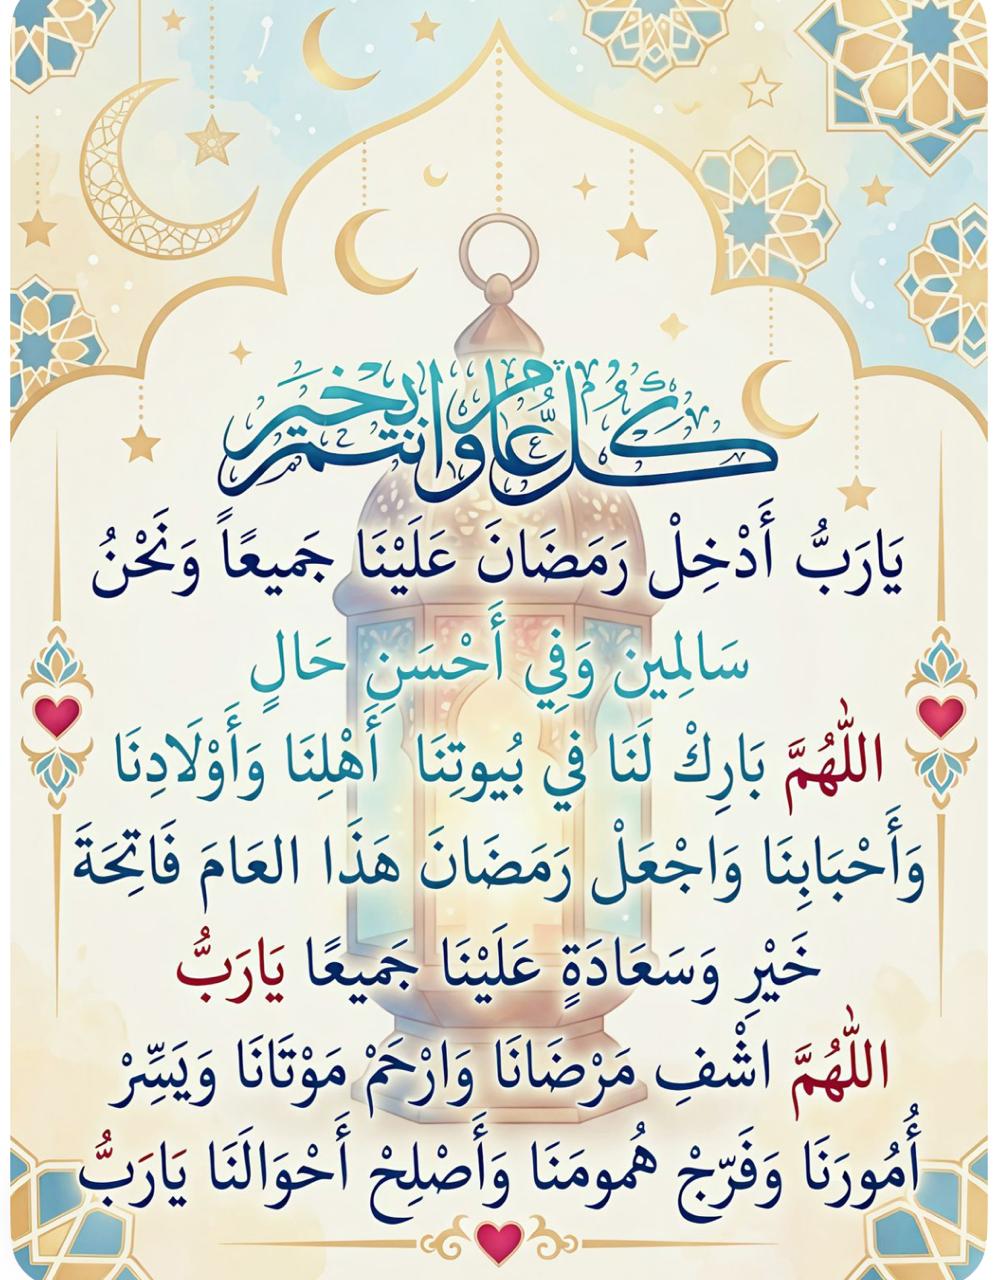 كُلُّ عَامٍ وَانْتُمْ بِخَيْرٍ
يَارَبُّ أَدْخِلْ رَمَضَانَ عَلَيْنَا جَمِيعاً وَنَحْنُ
سَالِمِين وَفِي أَحْسَنِ حَالٍ
اللّٰهُمَّ بَارِكْ لَنَا فِي بُيوتِنَا أَهْلِنَا وَأَوْلَادِنَا
وَأَحْبَابِنَا وَاجْعَلْ رَمَضَانَ هَذَا العَامَ فَاتِحَةَ
خَيْرٍ وَسَعَادَةٍ عَلَيْنَا جَمِيعًا يَارَبُّ
اللّٰهُمَّ اشْفِ مَرْضَانَا وَارْحَمْ مَوْتَانَا وَيَسِّرْ
أُمُورَنَا وَفَرِّجْ هُمومَنَا وَأَصْلِحْ أَحْوَالَنَا يَارَبُّ